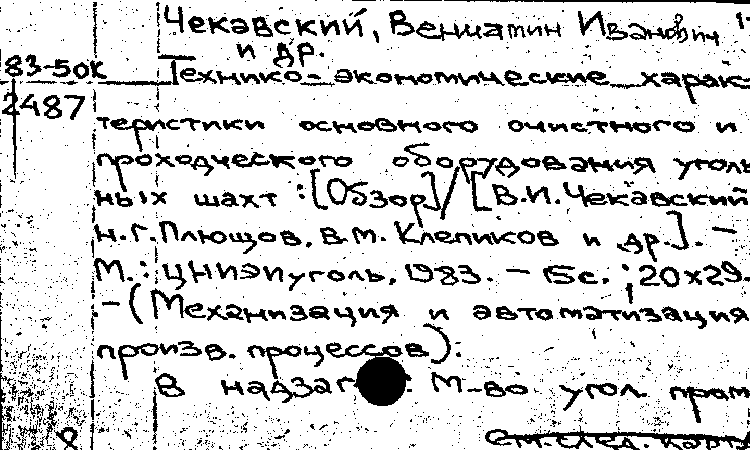 Чекавский, Вениамин Иванович
и др.
83-50к Технико-экономические харак-
2487
теристики основного очистного и
проходческого оборудования уголь
ных шахт : [Обзор] / [В.И. Чекавский
Н.Г. Плющов, В.М. Клепиков и др.]. —
М. : ЦНИЭИуголь, 1983. — с. ; 20x29.
.—(Механизация и автоматизация
произв. процессов):
В надзаг : М-во угол. пром
См. след. карту